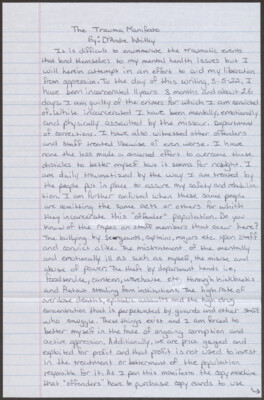 The Trauma Manifesto
By: D'Andre Whitley
It is difficult to summarize the traumatic events
that lend themselves to my mental health issues but I
will herein attempt in an effort to aid my liberation
from oppression. To the day of this writing, 3-5-22, I
have been incarcerated 11 years 3 months and about 26
days. I am guilty of the crimes for which I am convicted
of. While incarcerated I have been mentally, emotionally,
and physically assaulted by the Missouri Department
of corrections. I have also witnessed other offenders
and staff treated likewise or even worse. I have
none the less made a concerted efforts to overcome these
obstacles to better myself but it seems for naught. I
am daily traumatized by the way I am treated by
the people put in place to assure my safety and rehabilita-
tion. I am further confused when these same people
are exhibiting the same acts or others for which
they incarcerate this "offender" population. Do you
know of the rapes on staff members that occur here?
The bullying by sergeants, captains, majors etc. upon staff
and convict alike. The mistreatment of the mentally
and emotionally ill as such as myself, the misuse and
abuse of power. The thefts by department heads i.e.;
foodservice, canteen, warehouse etc. through kickbacks
and flat out stealing from institutions. The high rate of
overdose deaths, and the high drug
concentration that is perpetuated by guards and other staff
who smuggle. These things exist and I am forced to
better myself in the face of ongoing corruption and
active oppression. Additionally, we are price gauged and
exploited for profit and that profit is not used to invest
in the treatment or betterment of the population
responsible for it. As I pen this manifesto the copy machine
that "offenders" have to purchase copy cards to use